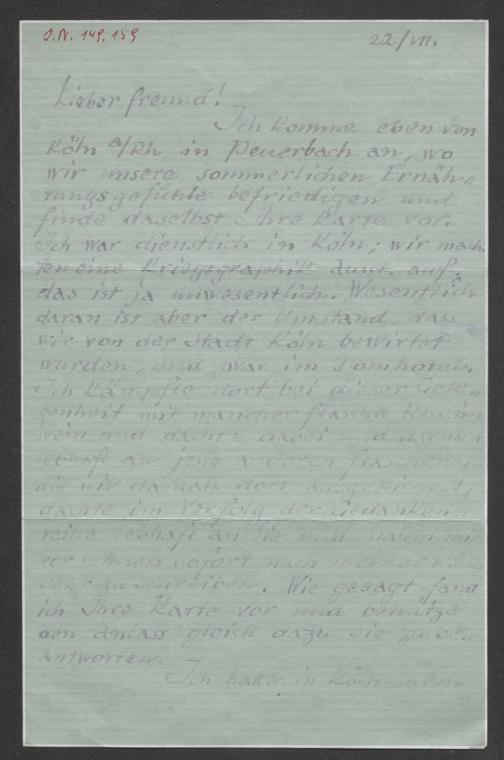 J.N. 149.159
22/VII.
Lieber Freund!
Ich komme eben von
Köln a/Rh in Peuerbach an, wo
wir unsere sommerlichen Ernäh„
rungsgefühle befriedigen und
finde daselbst Ihre Karte vor.
Ich war dienstlich in Köln; wir mach„
ten eine Kriegsgraphik Ausst. auf;
das ist ja unwesentlich. Wesentlich
daran ist aber der Umstand, dass
wir von der Stadt Köln bewirtet
wurden, und zwar im Domhotel.
Ich kämpfte dort bei dieser Gele„
genheit mit mancher Flasche Rhein
wein und dachte dabei und
lebhaft an jene anderen Flaschen,
die wir damals dort
dachte im Verfolg der Gedanken„
reihe lebhaft an Sie und nahm mir
vor Ihnen sofort nach meiner Rück
kehr zu schreiben. Wie gesagt fand
ich Ihre Karte vor und benütze
den Anlass gleich dazu sie zu be„
antworten.
Ich hatte in Köln